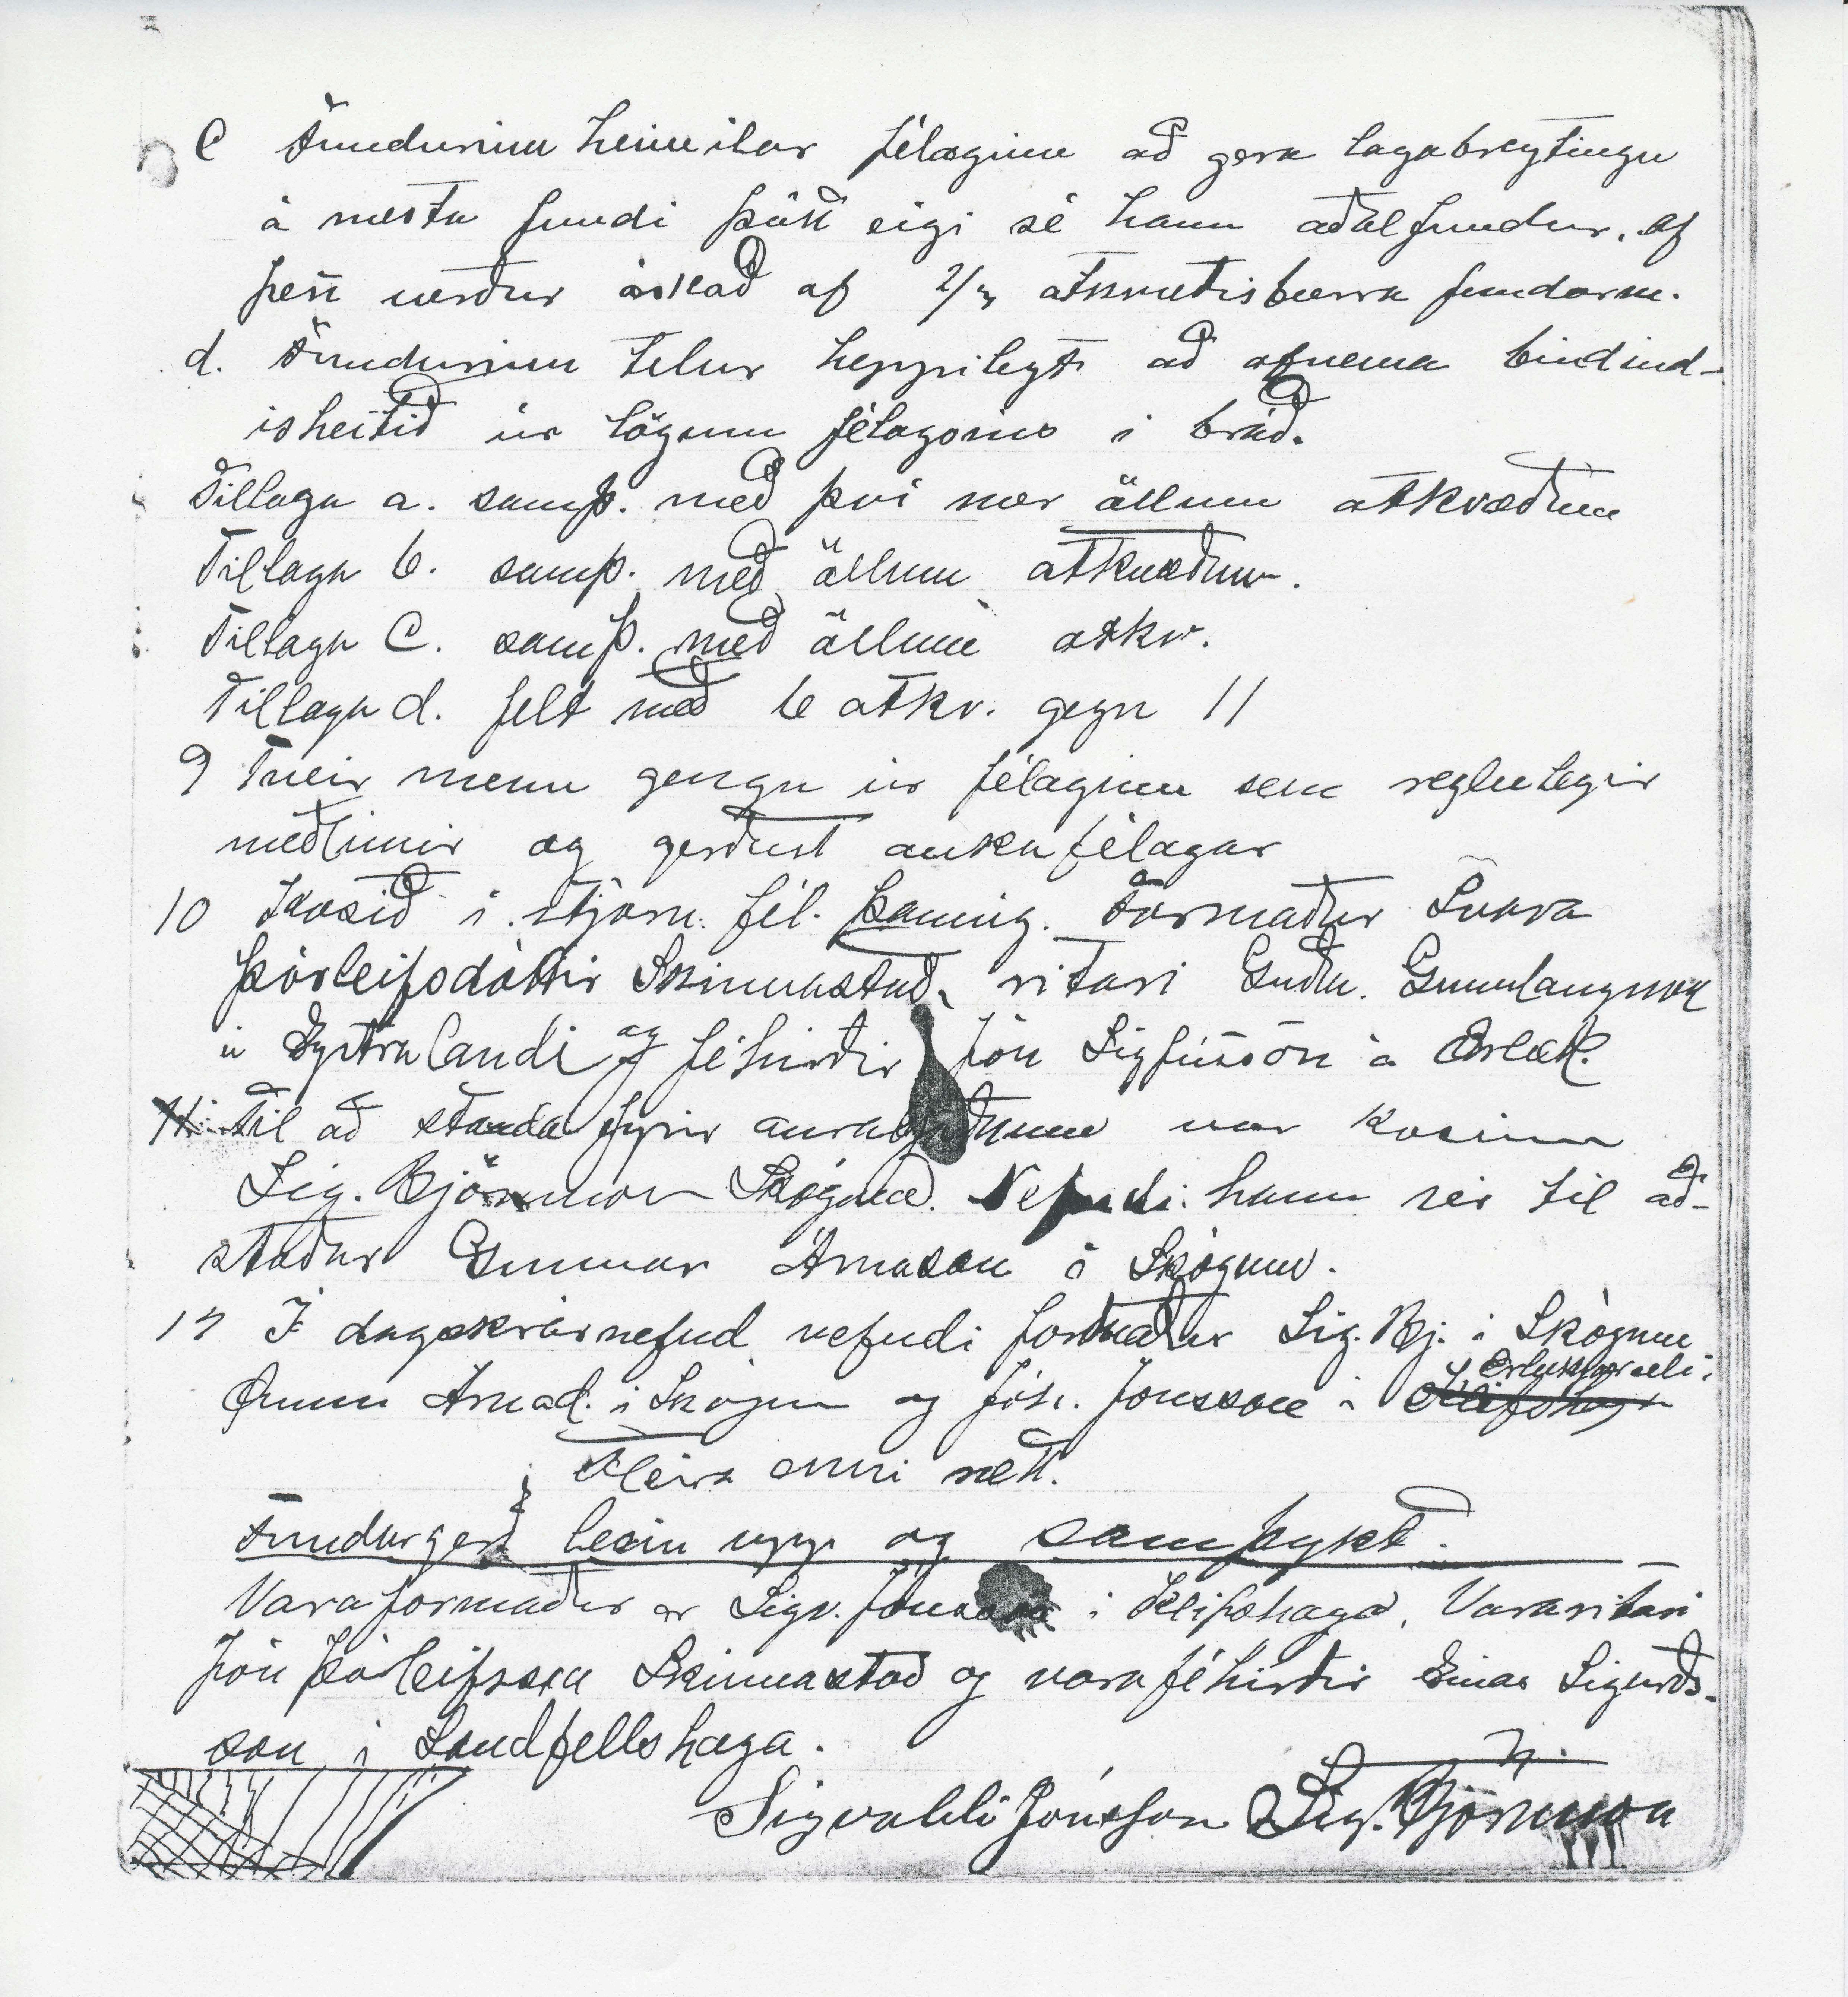 C Fundurinn heimilar félaginu að gera lagabreytingu
á næsta fundi þótt eigi sé hann aðalfundur, ef
þess verður óskað af 2/3 atkvæðisbærra fundarm.
d. Fundurinn telur heppilegt að afnema bindind-
isheitið úr lögum félagsins i bráð.
Tillaga a. samþ. með því nær öllum atkvæðum
Tillaga b. samþ. með öllum atkvæðum.
Tillaga C. samþ. með öllum atkv.
Tillaga d. felt með 6 atkv. gegn 11
9 Tveir menn gengu úr félaginu sem reglulegir
meðlimir og gerðust aukafélagar
10 Kosið i stjórn fél. þannig. Formaður
Þórleifsdóttir Skinnastað, ritari Guðm. Gunnlaugsson
á landi og féhirðir Jón Sigfússon á Ærlæk.
11 Til að standa fyrir var kosinn
Sig. Björnsson Skógum. Nefndi hann sér til að-
stoðar Gunnar Árnason í Skógum.
12 Í dagskrárnefnd nefndi formaður Sig. Bj. i Skógum
Árnad. i Skógum og Jóh. Jónsson i
Fleira ekki rætt.
Fundargerð lesin upp og samþykt.
Varaformaður er Sigv. Jónsson i Klifshaga, Vararitari
Jón Þórleifsson Skinnastað og varaféhirðir Einar Sigurðs-
son i Sandfellshaga.
Sigvaldi Jónsson Sig. Björnsson